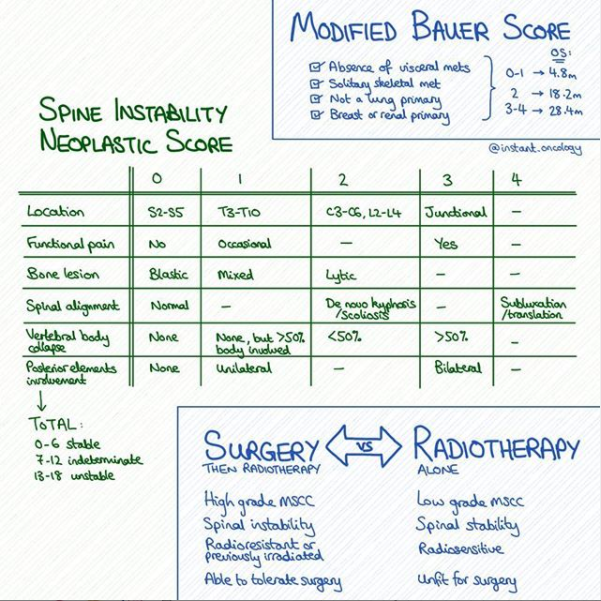 MODIFIED BAUER SCORE
☑ Absence of visceral mets
☑ Solitary skeletal met
☑ Not a lung primary
☑ Breast or renal primary
OS:
0-1 → 4.8m
2 → 18.2m
3-4 → 28.4m
@instant.oncology
SPINE INSTABILITY
NEOPLASTIC SCORE
0 1 2 3 4
Location S2-S5 T3-T10 C3-C6, L2-L4 Junctional –
Functional pain No Occasional – Yes –
Bone lesion Blastic Mixed Lytic – –
Spinal alignment Normal – De novo kyphosis /scoliosis – Subluxation /translation
Vertebral body collapse None None, but >50% body involved <50% >50% –
Posterior elements involvement None Unilateral – Bilateral –
TOTAL:
0-6 stable
7-12 indeterminate
13-18 unstable
SURGERY VS RADIOTHERAPY
THEN RADIOTHERAPY ALONE
High grade MSCC Low grade MSCC
Spinal instability Spinal stability
Radioresistant or previously irradiated Radiosensitive
Able to tolerate surgery Unfit for surgery